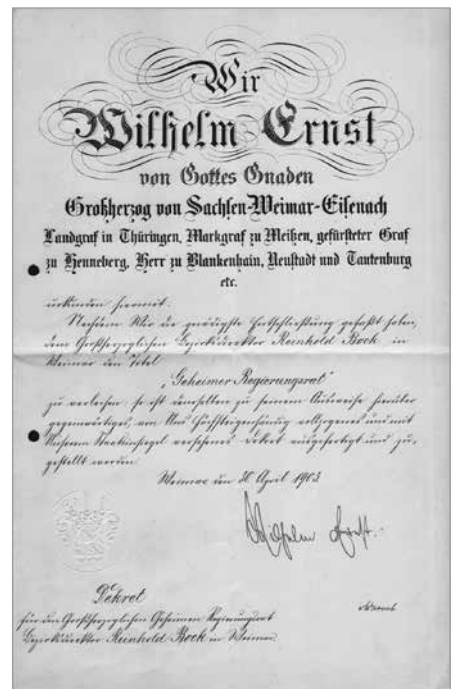 Wir
Wilhelm Ernst
von Gottes Gnaden
Großherzog von Sachsen-Weimar-Eisenach
Landgraf in Thüringen, Markgraf zu Meißen, gefürsteter Graf
zu Henneberg, Herr zu Blankenhain, Neustadt und Tautenburg
etc.
urkunden hiermit:
Nachdem Wir die gnädigste Entschließung gefaßt haben,
dem Großherzoglichen Bezirksdirektor Reinhold Bock in
Weimar den Titel
"Geheimer Regierungsrat"
zu verleihen, so ist demselben zu seinem Ausweise hierüber
gegenwärtiges, von Uns Höchsteigenhändig vollzogenes und mit
Unserem Staatsinsiegel versehenes Dekret ausgefertigt und zu-
gestellt worden.
Weimar den 30. April 1903.
Wilhelm Ernst.
Dekret
für den Großherzoglichen Geheimen Regierungsrat
Bezirksdirektor Reinhold Bock in Weimar.